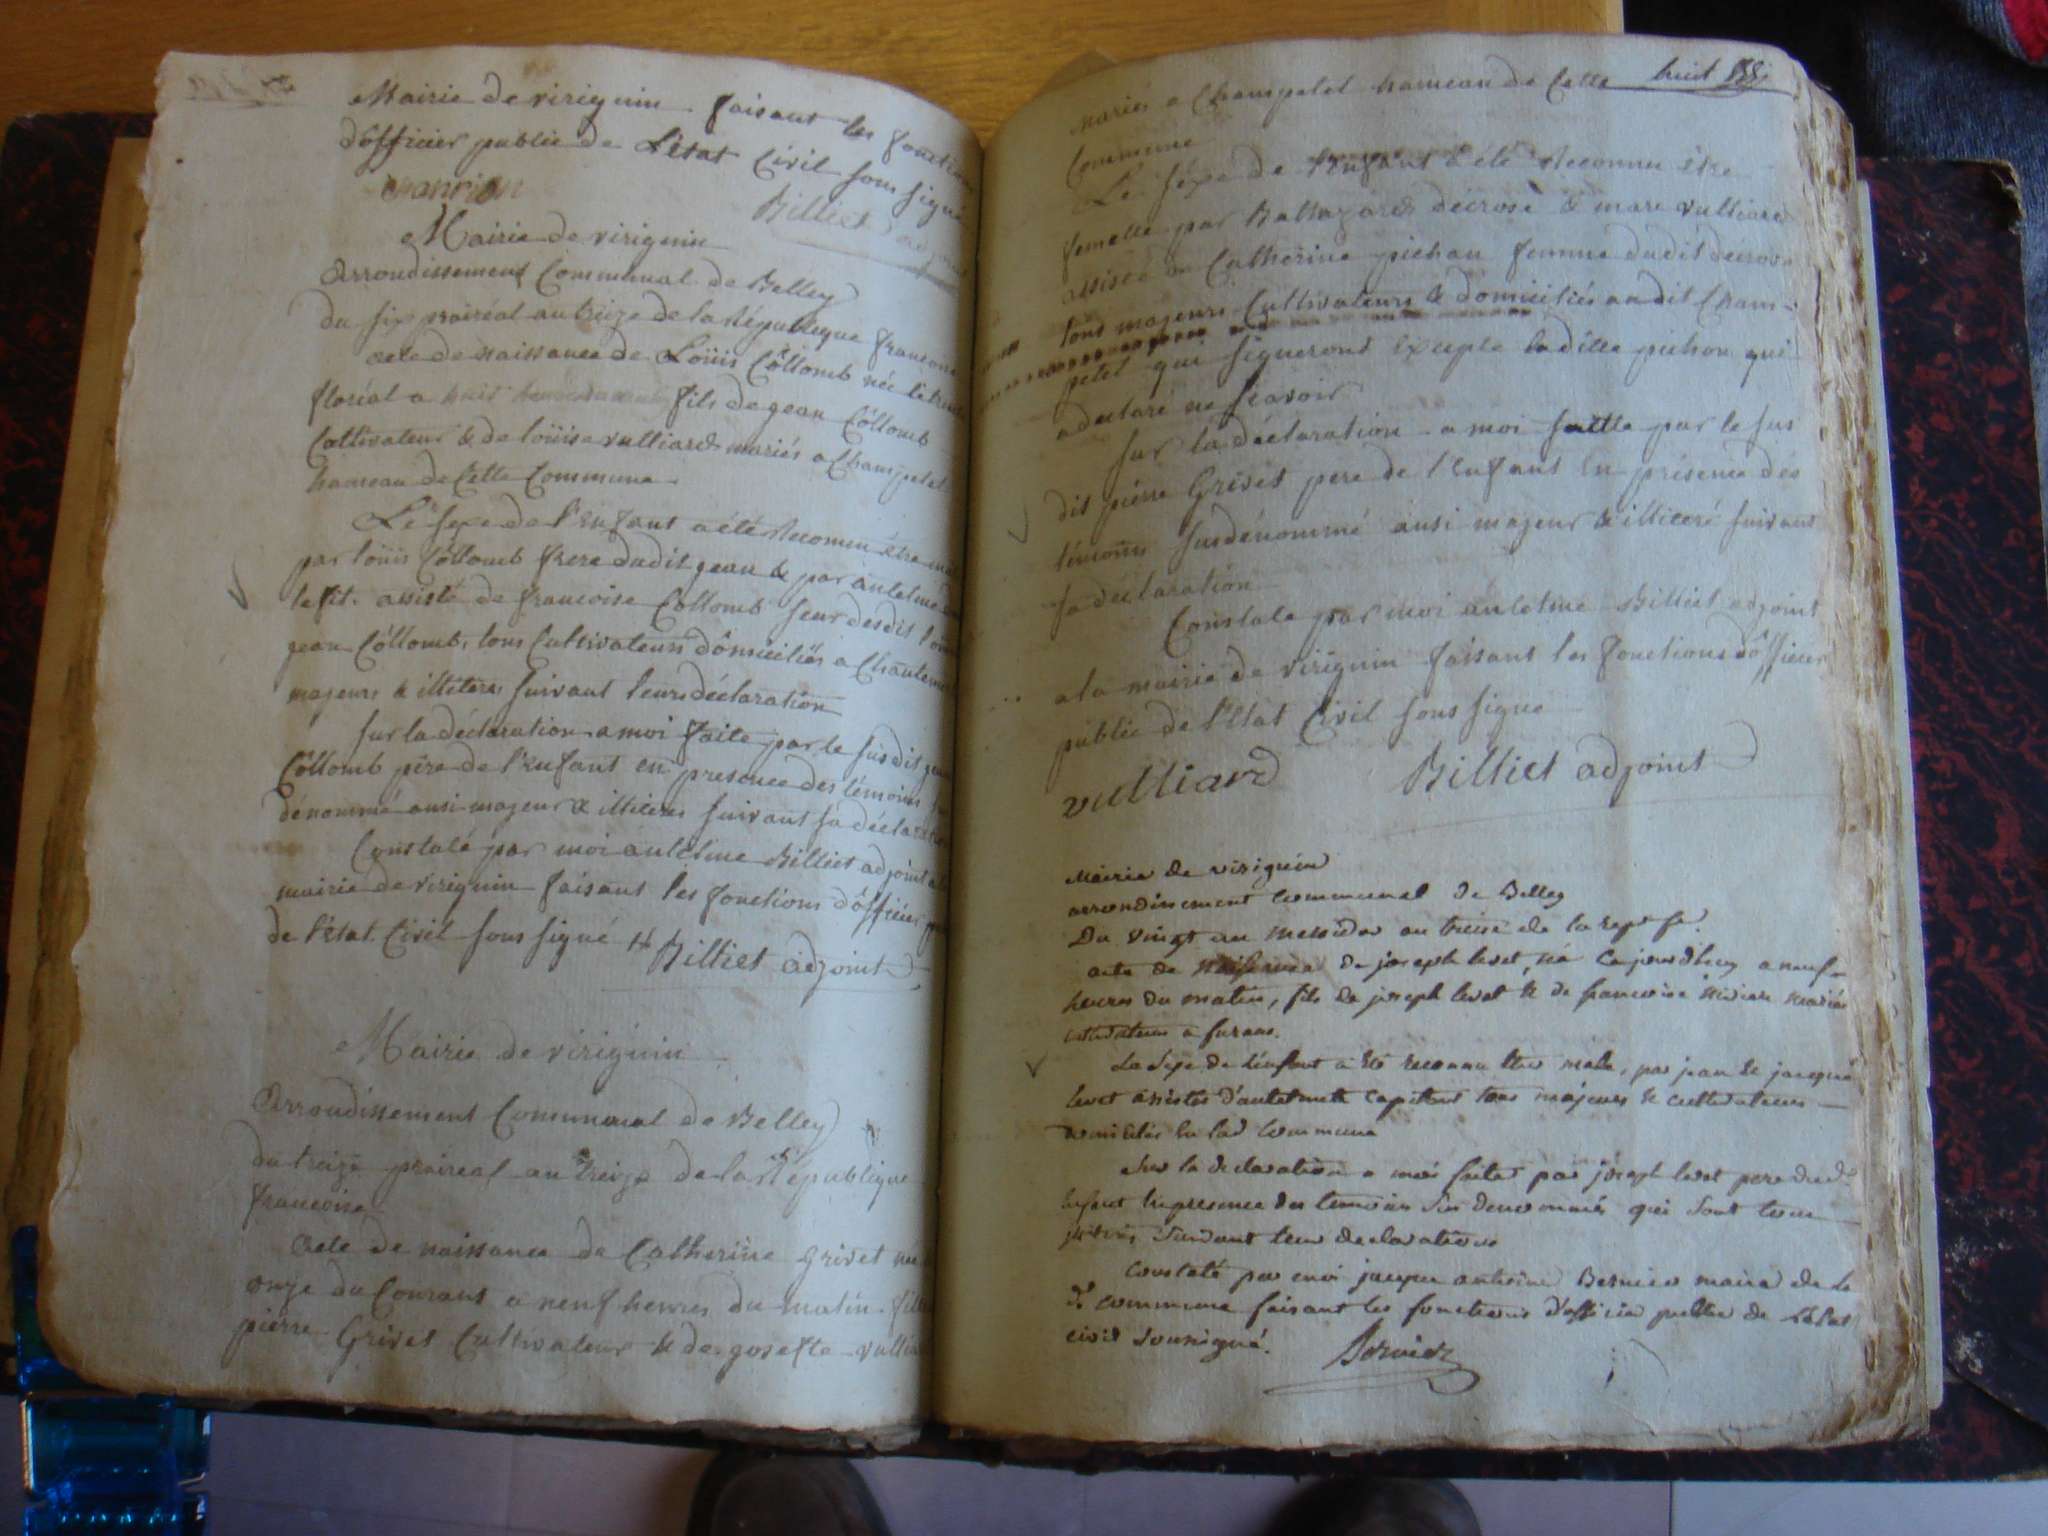 Mairie de virignin faisant les fonctions
d'officier public de L'état Civil sous signé
manrion
Billiet adjoint
Mairie de virignin
Arrondissement Communal de Belley
du six prairéal an treize de la république francoise
acte de naissance de Loüis Côllomb née le trente
floréal a huit heures du fils de jean Côllomb
Cultivateur & de loüise vulliard mariés a Champetel
hameau de Cette Commune
Le sexe de l'Enfant a été Reconnu être male
par loüis Côllomb frere dudit jean & par antelme
lefit. assisté de francoise Collomb seur desdit loüis
jean Côllomb, tous Cultivateurs dômiciliés a Chantemer
majeurs & illitérés suivant leurs déclaration
sur la déclaration a moi faite par le susdit jean
Côllomb pére de l'Enfant en presence des témoins sus
dénommé ausi majeur & illitéré suivant sa déclaration
Constaté par moi antelme Billiet adjoint a la
mairie de virignin faisant les fonctions d'officier public
de l'état Civil sous signé Billiet adjoint
Mairie de virignin
Arrondissement Communal de Belley
du treize prairéal an treize de la République
francoise
Acte de naissance de Catherine Grivet née le
onze du Courant a neuf heures du matin fille
pierre Grivet Cultivateur & de josefte vulliard
huit
mariés a Champetel hameau de Cette
Commune
Le sexe de l'Enfant a été Reconnu être
femelle par Baltazard décrose & marc vulliard
assisté de Catherine pichon femme dudit décrose
tous majeurs Cultivateurs & domiciliés audit Cham-
petel qui signerons Excepté ladite pichon qui
a déclaré ne scavoir
sur la déclaration a moi faitte par le sus
dit piérre Grivet pere de l'Enfant En présence dés
témoins susdénommé ausi majeur & illiteré suivant
sa déclaration
Constaté par moi antelme Billiet adjoint
a la mairie de virignin faisant les fonctions d'officier
public de l'état Civil sous signé
vulliard Billiet adjoint
Mairie de virignin
arrondissement communal de Belley
Du vingt un messidor an treize de la rep. fse.
acte de Naissance de joseph levet, né ce jourdhuy a neuf
heures du matin, fils de joseph levet & de francoise mariés
cultivateurs a furans.
Le sexe de lenfant a été reconnu être male, par jean & jacques
levet assistés d'antelmette Capitant tous majeurs & cultivateurs
domiciliés en lad commune
Sur la declaration a moi faite par joseph levet pere dud.
enfant En presence des temoins sus denommés qui sont tous
illitérés, suivant leur declaration
constaté par moi jacques antoine Bernier maire de la
de commune faisant les fonctions d'officier public de létat
civil soussigné. Bernier